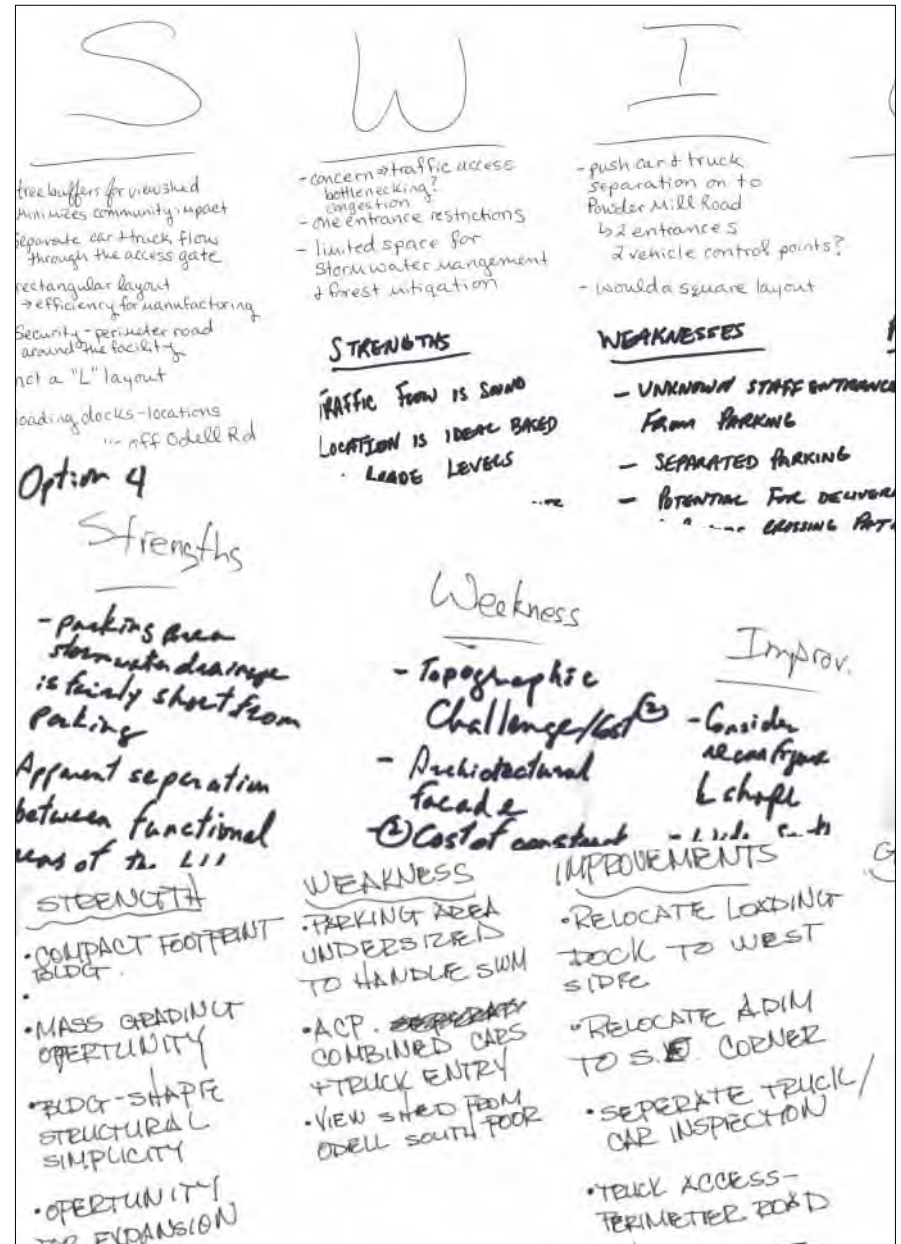 S W I
tree buffers for viewshed
minimizes community impact
Separate car + truck flow
through the access gate
rectangular layout
→ efficiency for mannfactoring
Security - perimeter road
around the facility
not a "L" layout
loading docks - locations
off Odell Rd
- concern → traffic access
bottlenecking?
congestion
- one entrance restrictions
- limited space for
Stormwater mangement
+ forest mitigation
- push car + truck
separation on to
Powder Mill Road
↳ 2 entrances
2 vehicle control points?
- would a square layout
STRENGTHS
TRAFFIC FLOW IS SOUND
LOCATION IS IDEAL BASED
LEVELS
WEAKNESSES
- UNKNOWN STAFF ENTRANCE
FROM PARKING
- SEPARATED PARKING
- POTENTIAL FOR DELIVER
CROSSING PAT
Option 4
Strengths
- parking area
stormwater drainage
is fairly short from
parking
Apparent separation
between functional
of the
Weekness
- Topographic
Challenge/Cost ②
- Archiotectural
facade
- ② Cost of construct
Improv.
- Consider
reconfigure
L shape
STRENGTH
• COMPACT FOOTPRINT
BLDG.
•
• MASS GRADING
OPERTUNITY
• BLDG-SHAPE
STRUCTURAL
SIMPLICITY
• OPERTUNITY
FOR EXPANSION
WEAKNESS
• PARKING AREA
UNDERSIZED
TO HANDLE SWM
• ACP.
COMBINED CARS
+ TRUCK ENTRY
• VIEW SHED FROM
ODELL SOUTH POOR
IMPROVEMENTS
• RELOCATE LOADING
DOCK TO WEST
SIDE
• RELOCATE ADIM
TO S.E. CORNER
• SEPERATE TRUCK/
CAR INSPECTION
• TRUCK ACCESS-
PERIMETER ROAD